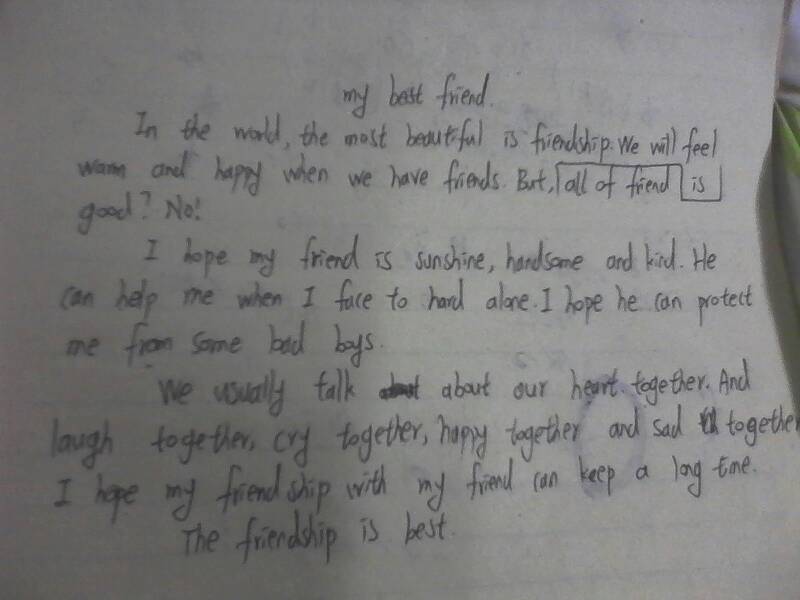 my best friend.
In the world, the most beautiful is friendship. We will feel
warm and happy when we have friends. But, all of friend is
good? No!
I hope my friend is sunshine, handsome and kind. He
can help me when I face to hard alone. I hope he can protect
me from some bad boys.
We usually talk about our heart together. And
laugh together, cry together, happy together and sad together
I hope my friendship with my friend can keep a long time.
The friendship is best.